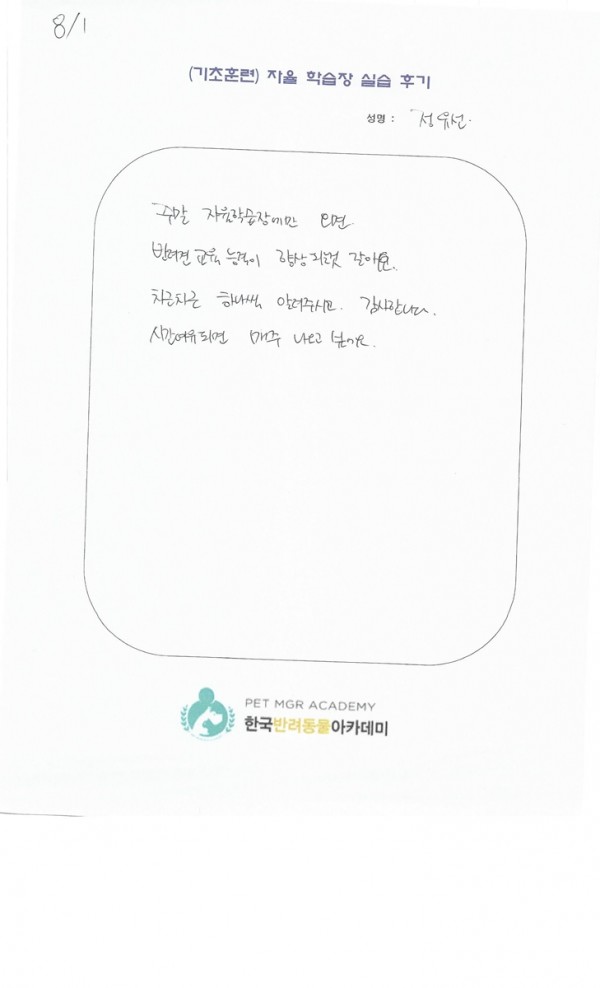 8/1
(기초훈련) 자율 학습장 실습 후기
성명 : 정유선.
주말 자율학습장에만 오면
반려견 교육 능력이 향상되는것 같아요.
차근차근 하나씩 알려주시고. 감사합니다.
시간여유되면 매주 나오고 싶어요.
PET MGR ACADEMY
한국반려동물아카데미